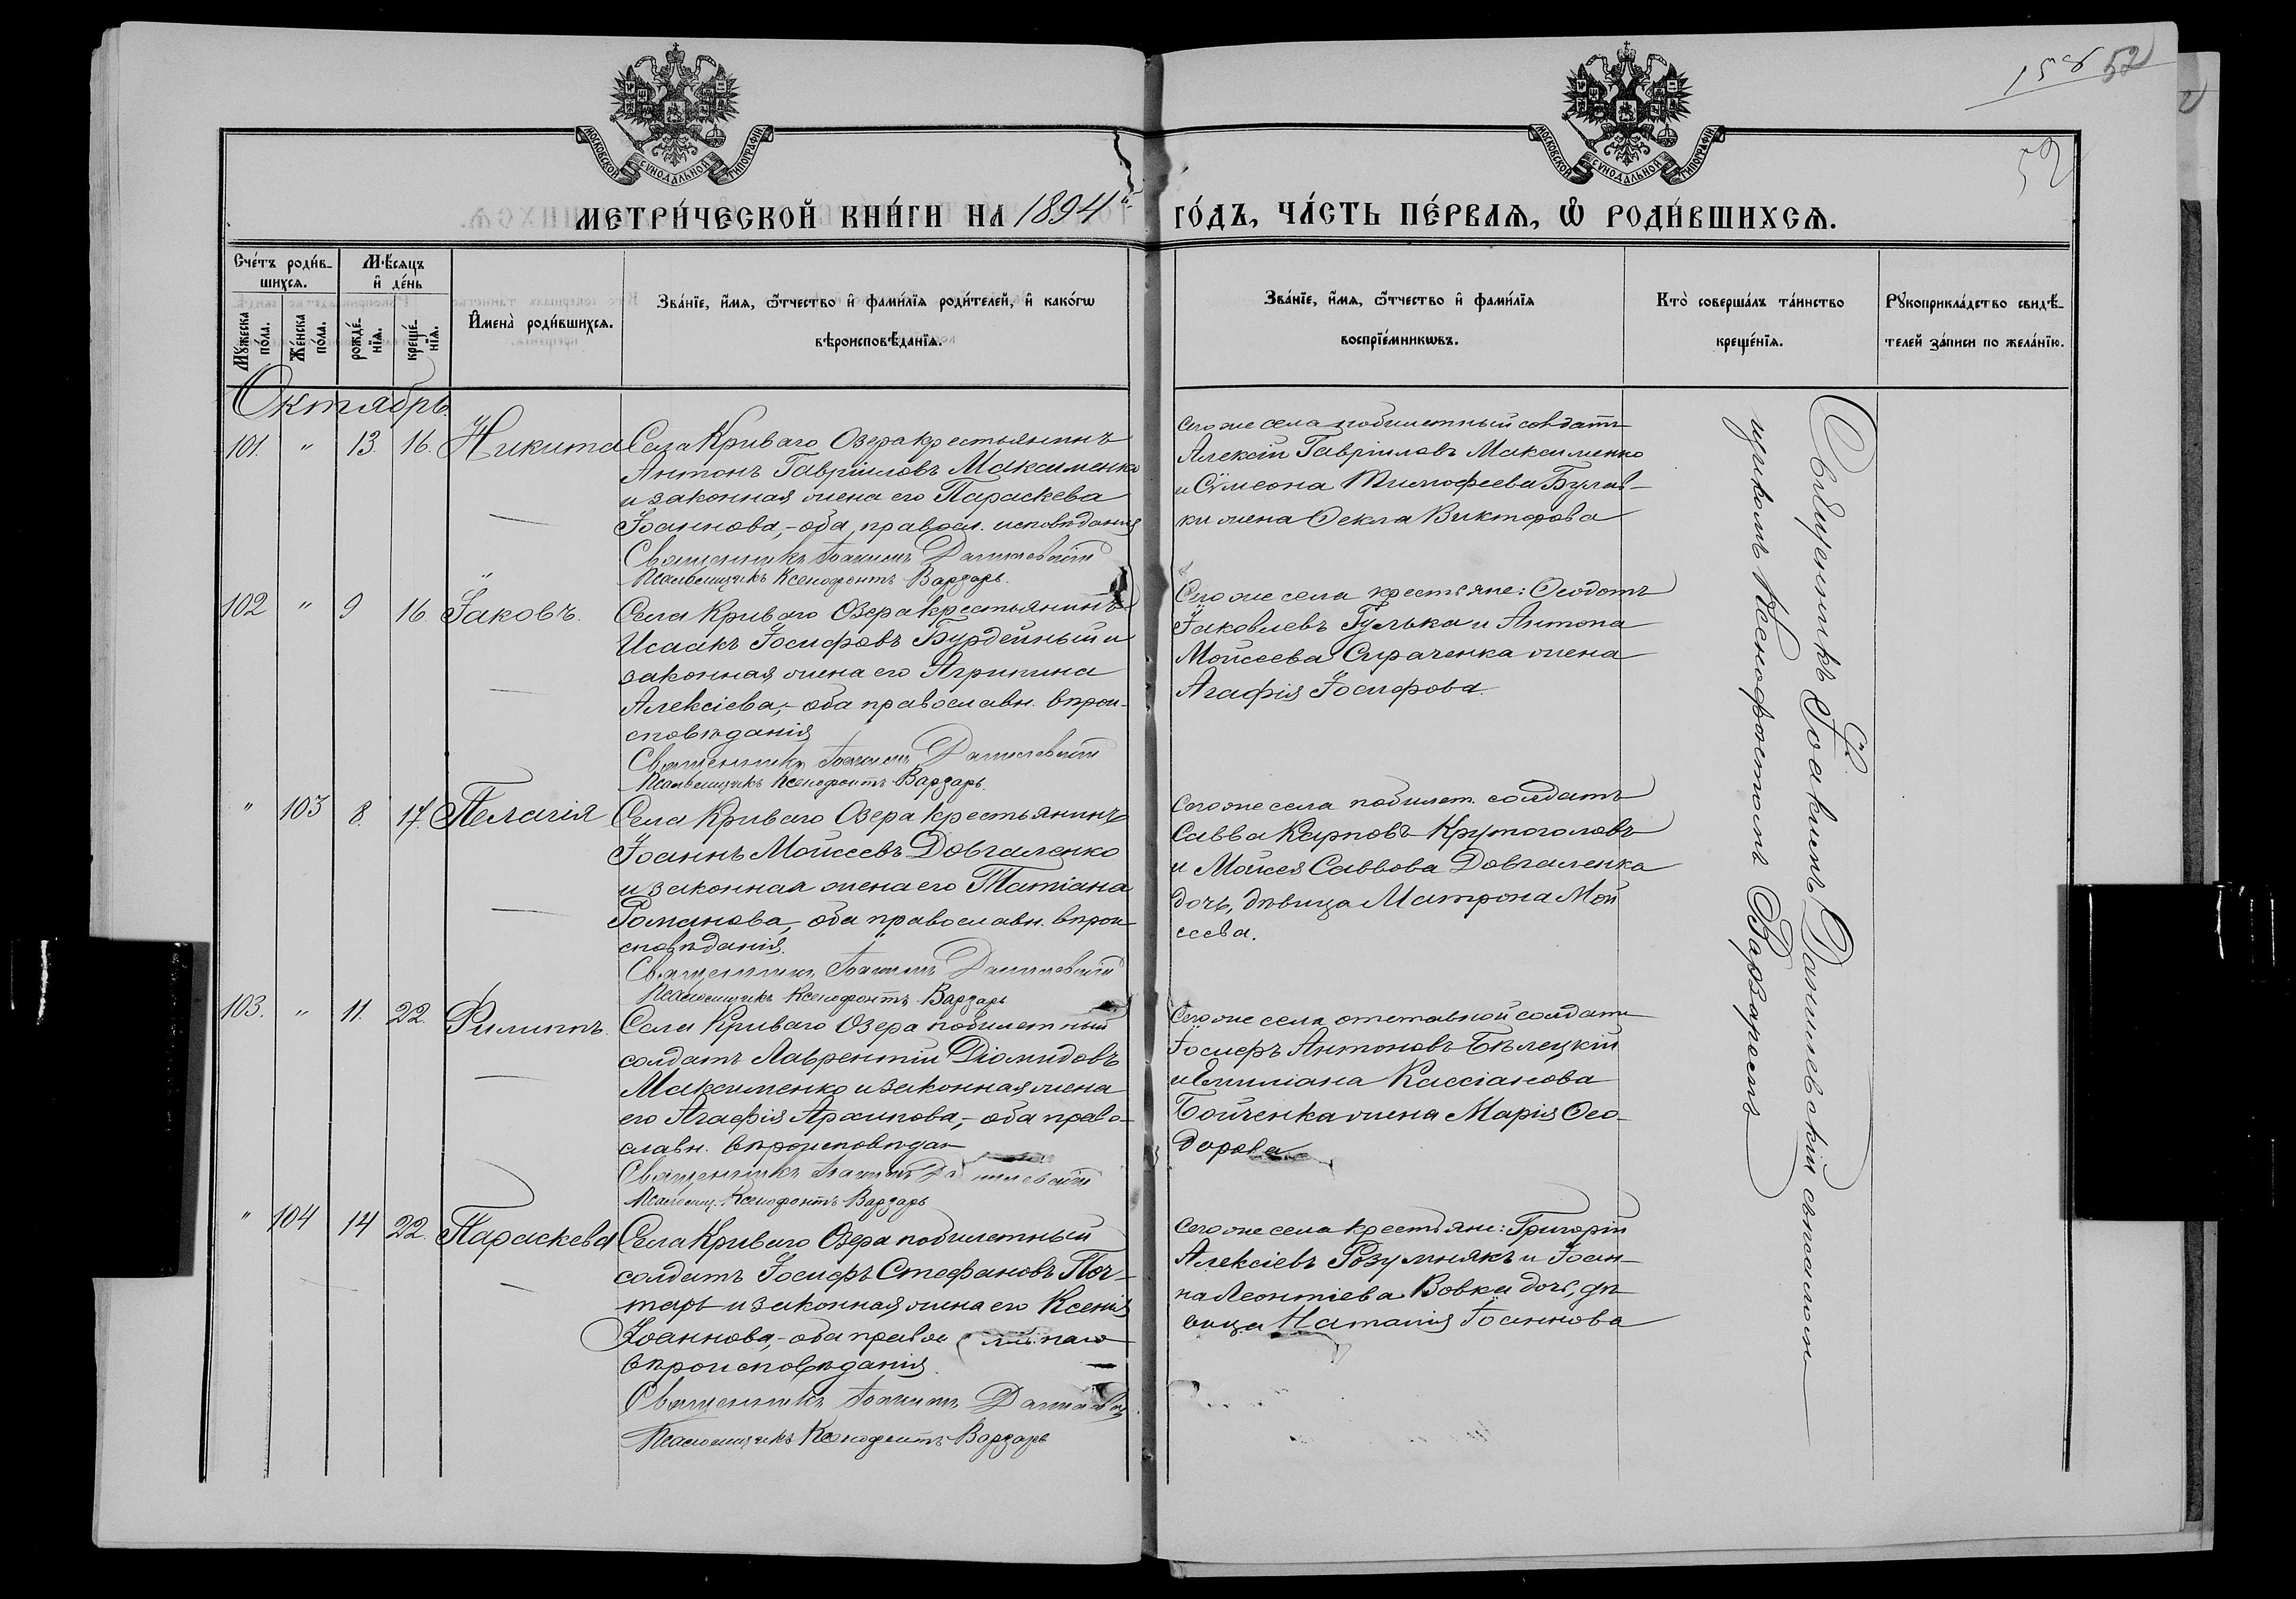 158 52
52
МОСКОВСКОЙ СѴНОДАЛЬНОЙ ТИПОГРАФІИ
МОСКОВСКОЙ СѴНОДАЛЬНОЙ ТИПОГРАФІИ
МЕТРИ́ЧЕСКОЙ КНИ́ГИ НА 1894й ГО́ДЪ, ЧА́СТЬ ПЕ́РВАѦ, Ѡ҆ РОДИ́ВШИХСѦ.
Счéтъ роди́в-
шихсѧ.
Мѣ́сѧцъ
и҆ дéнь
Мꙋ́жеска
пóла.
Жéнска
пóла.
рождé-
нїѧ.
крещé-
нїѧ.
И҆менà роди́вшихсѧ.
Звáнїе, и҆́мѧ, ѻ҆́тчество и҆ фами́лїѧ роди́телей, и҆ какóгѡ
вѣроисповѣ́данїѧ.
Звáнїе, и҆́мѧ, ѻ҆́тчество и҆ фами́лїѧ
воспрїéмникѡвъ.
Ктò совершáлъ тáинство
крещéнїѧ.
Рꙋкоприклáдство свидѣ́-
телей зáписи по желáнїю.
Октябрь.
101. " 13. 16. Никита
Села Криваго Озера крестьянинъ
Антонъ Гавріиловъ Максименко
и законная жена его Параскева
Іоаннова,- оба правосл. исповѣданія
Священникъ Іоакимъ Данилевскій
Псаломщикъ Ксенофонтъ Варзарь.
Сего же села побилетный солдатъ
Алексій Гавріиловъ Максименко
и Сѵмеона Тимофеева Булав-
ки жена Ѳекла Викторова
102 " 9 16. Іаковъ.
Села Криваго Озера крестьянинъ
Исаакъ Іосифовъ Бурдейный и
законная жена его Агрипина
Алексіева,- оба православн. вѣрои-
сповѣданія
Священникъ Іоакимъ Данилевскій
Псаломщикъ Ксенофонтъ Варзарь.
Сего же села крестьяне: Ѳеодотъ
Іаковлевъ Гулька и Антона
Мойсеева Сираченка жена
Агафія Іосифова.
" 103 8. 17. Пелагія
Села Криваго Озера крестьянинъ
Іоаннъ Мойсеевъ Довгаленко
и законная жена его Татіана
Романова, оба православн. вѣрои-
сповѣданія.
Священникъ Іоакимъ Данилевскій
Псаломщикъ Ксенофонтъ Варзарь
Сего же села побилет. солдатъ
Савва Карповъ Крутоголовъ
и Мойсея Саввова Довгаленка
дочь, дѣвица Матрона Мой
сеева.
103. " 11. 22. Филиппъ.
Села Криваго Озера побилетный
солдатъ Лаврентій Діомидовъ
Максименко и законная жена
его Агафія Архипова,- оба право-
славн. вѣроисповѣдан
Священникъ Іоакимъ Данилевскій
Псаломщ. Ксенофонтъ Варзарь
Сего же села отставной солдатъ
Іосифъ Антоновъ Бѣлецкій
и Емиліана Кассіанова
Бойченка жена Марія Ѳео-
дорова
" 104 14 22. Параскева
Села Криваго Озера побилетный
солдатъ Іосифъ Стефановъ Поч-
тарь и законная жена его Ксенія
Іоаннова,- оба православнаго
вѣроисповѣданія.
Священникъ Іоакимъ Данилевскій
Псаломщикъ Ксенофонтъ Варзарь
Сего же села крестьяне: Григорій
Алексіевъ Розумнякъ и Іоан-
на Леонтіева Вовки дочь, дѣ-
вица Наталія Іоаннова
Священникъ Іоакимъ Данилевскій съ псалом
щикомъ Ксенофонтомъ Варзаремъ